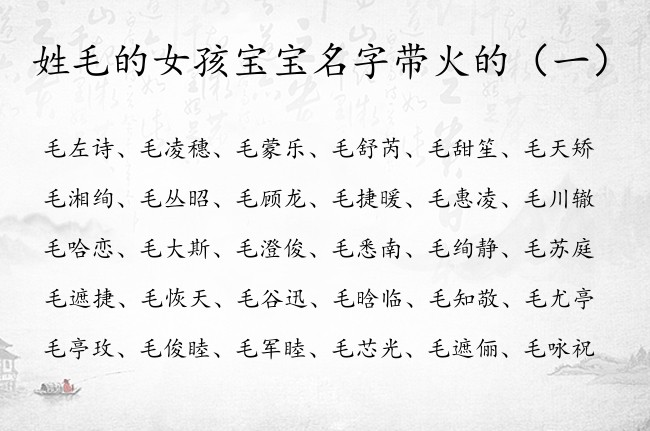 姓毛的女孩宝宝名字带火的（一）
毛左诗、毛凌穗、毛蒙乐、毛舒芮、毛甜笙、毛天矫
毛湘绚、毛丛昭、毛顾龙、毛捷暖、毛惠凌、毛川辙
毛哈恋、毛大斯、毛澄俊、毛悉南、毛绚静、毛苏庭
毛遮捷、毛恢天、毛谷迅、毛晗临、毛知敬、毛尤亭
毛亭玫、毛俊睦、毛军睦、毛芯光、毛遮俪、毛咏祝